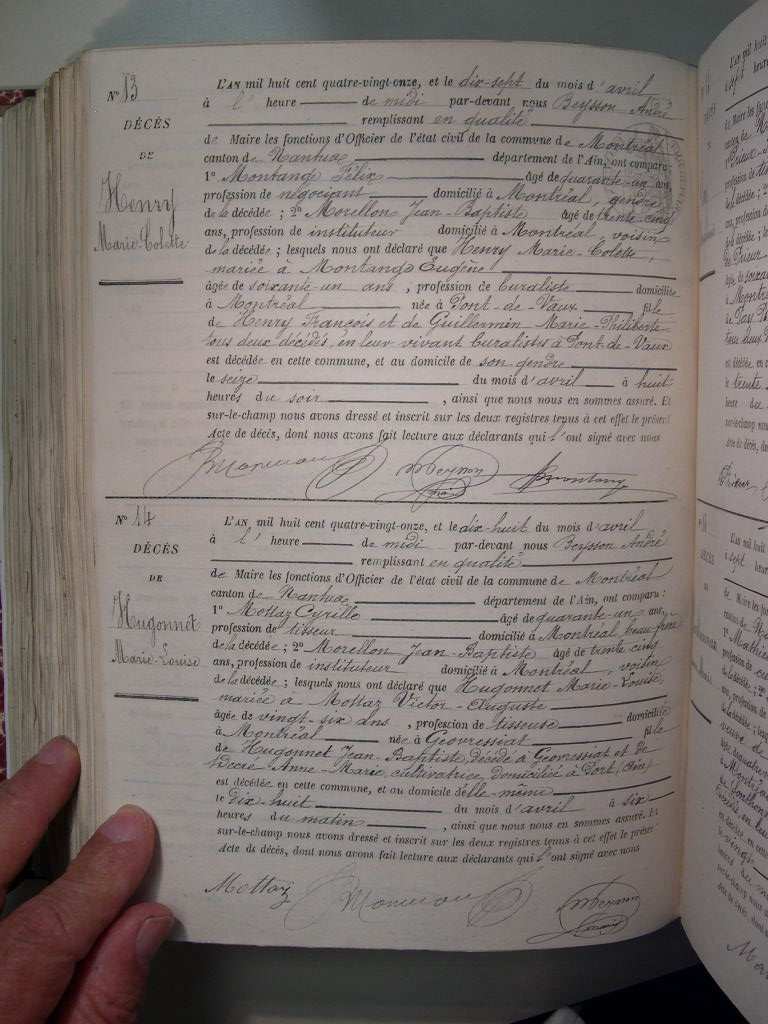 N° 13
DÉCÈS
DE
Henry
Marie-Colette
L'AN mil huit cent quatre-vingt-onze, et le dix-sept du mois d'avril
à l' heure de midi par-devant nous Beysson André
remplissant en qualité
de Maire les fonctions d'Officier de l'état civil de la commune de Montréal
canton de Nantua département de l'Ain, ont comparu
1° Montange Félix âgé de quarante-un ans,
profession de négociant domicilié à Montréal, gendre
de la décédée ; 2° Morellon Jean-Baptiste âgé de trente cinq
ans, profession de instituteur domicilié à Montréal, voisin
de la décédée ; lesquels nous ont déclaré que Henry Marie-Colette,
mariée à Montange Eugène
âgée de soixante-un ans, profession de buraliste domiciliée
à Montréal née à Pont-de-Vaux fille
de Henry François et de Guillermin Marie-Philiberte
tous deux décédés, en leur vivant buralistes à Pont-de-Vaux
est décédée en cette commune, et au domicile de son gendre
le seize du mois d'avril à huit
heures du soir, ainsi que nous nous en sommes assuré. Et
sur-le-champ nous avons dressé et inscrit sur les deux registres tenus à cet effet le présent
Acte de décès, dont nous avons fait lecture aux déclarants qui l'ont signé avec nous
N° 14
DÉCÈS
DE
Hugonnet
Marie-Louise
L'AN mil huit cent quatre-vingt-onze, et le dix-huit du mois d'avril
à l' heure de midi par-devant nous Beysson André
remplissant en qualité
de Maire les fonctions d'Officier de l'état civil de la commune de Montréal
canton de Nantua département de l'Ain, ont comparu :
1° Mottaz Cyrille âgé de quarante-un ans,
profession de tisseur domicilié à Montréal beau-frère
de la décédée ; 2° Morellon Jean-Baptiste âgé de trente cinq
ans, profession de instituteur domicilié à Montréal, voisin
de la décédée ; lesquels nous ont déclaré que Hugonnet Marie-Louise,
mariée à Mottaz Victor-Auguste
âgée de vingt-six ans, profession de tisseuse domiciliée
à Montréal née à Géovressiat fille
de Hugonnet Jean-Baptiste, décédé à Géovressiat et de
Anne-Marie, cultivatrice, domicilié à Port (Ain)
est décédée en cette commune, et au domicile d'elle-même
le Dix-huit du mois d'avril à six
heures du matin, ainsi que nous nous en sommes assuré. Et
sur-le-champ nous avons dressé et inscrit sur les deux registres tenus à cet effet le présent
Acte de décès, dont nous avons fait lecture aux déclarants qui l'ont signé avec nous
Mottaz